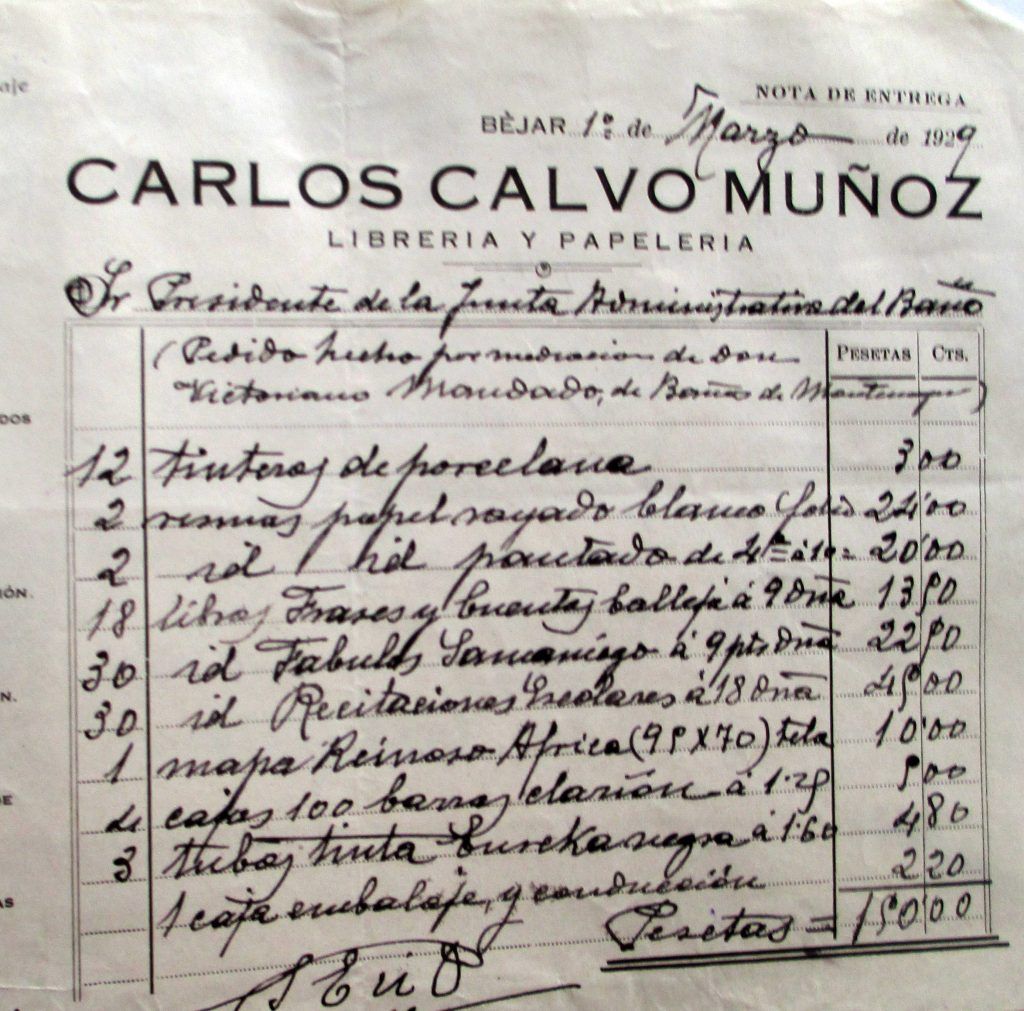 aje
NOTA DE ENTREGA
BÈJAR 1º de Marzo de 1929
CARLOS CALVO MUÑOZ
LIBRERIA Y PAPELERIA
Sr Presidente de la Junta Administrativa del Baño
PESETAS CTS.
(Pedido hecho por mediacion de don
Victoriano Mandado, de Baños de Montemayor)
12 tinteros de porcelana 3 00
2 resmas papel rayado blanco (folio 24'00
2 id id pautado de 4ª á 10= 20'00
18 libros Frases y Cuentos Calleja á 9 dna 13 50
30 id Fabulas Samaniego á 9 pts dna 22 50
30 id Recitaciones Escolares á 18 dna 45 00
1 mapa Reinoso Africa (95 X 70) tela 10'00
4 cajas 100 barras clarión á 1'25 5 00
3 tubos tinta Eureka negra á 1'60 4 80
1 caja embalaje, y conducción 2 20
Pesetas = 150'00
DOS
IÓN.
N.
DE
AS